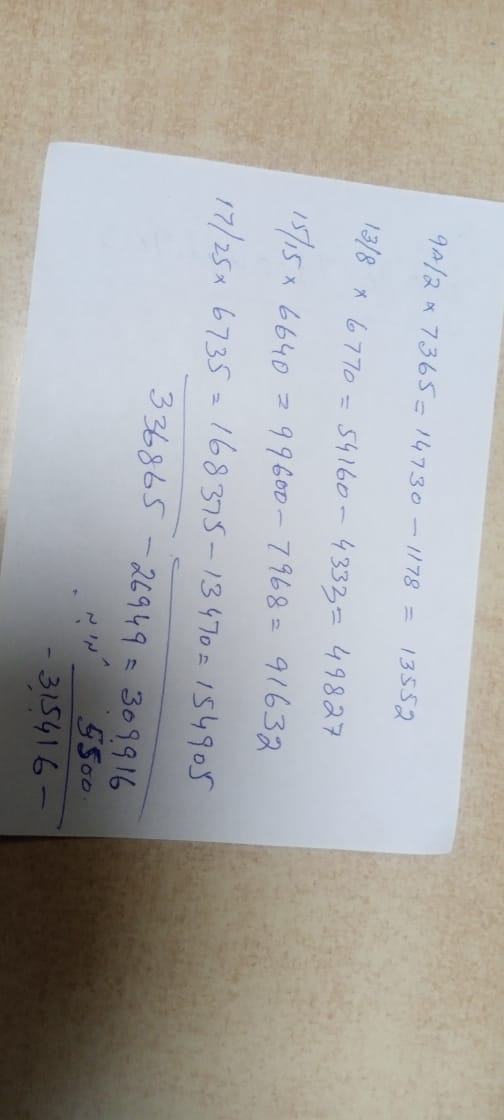 9A/2 x 7365 = 14730 - 1178 = 13552
13/8 x 6770 = 54160 - 4333 = 49827
15/15 x 6640 = 99600 - 7968 = 91632
17/25 x 6735 = 168375 - 13470 = 154905
336865 - 26949 = 309916
5500
- 315416 -